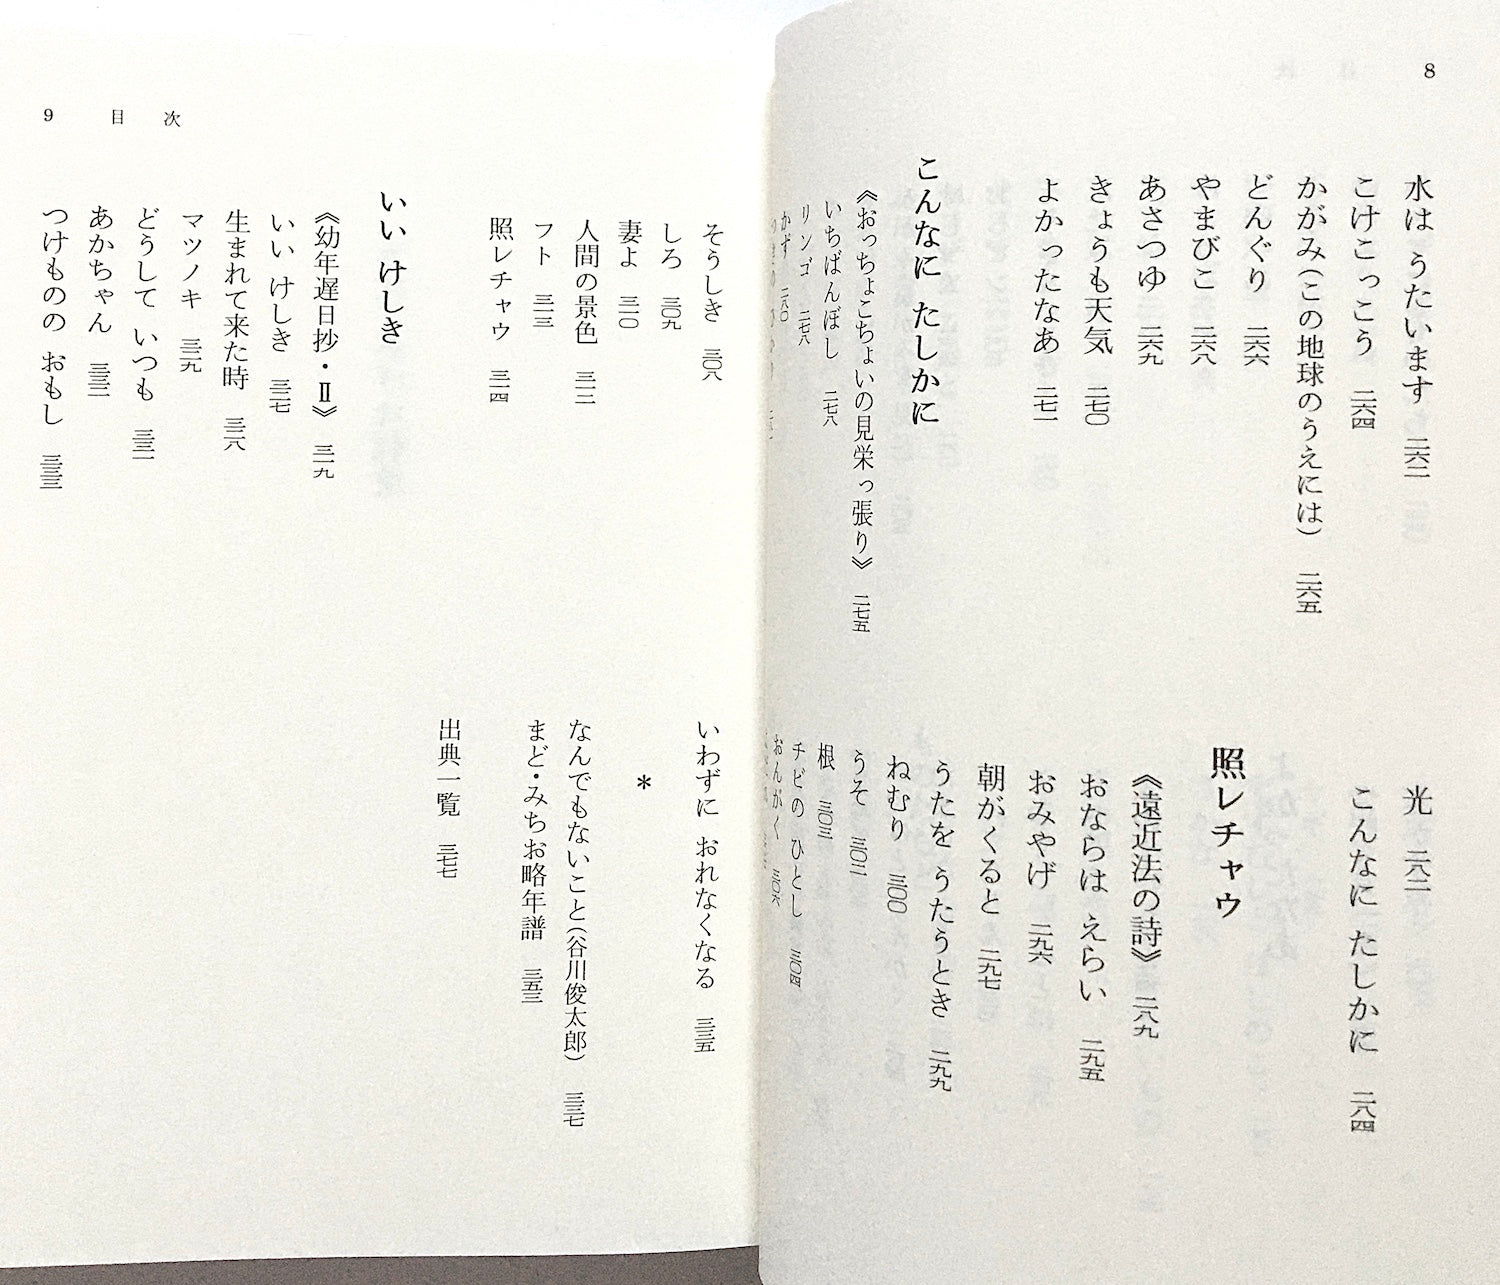 8
水は うたいます 二六二
こけこっこう 二六四
かがみ(この地球のうえには) 二六五
どんぐり 二六六
やまびこ 二六八
あさつゆ 二六九
きょうも天気 二七〇
よかったなあ 二七一
こんなに たしかに
《おっちょこちょいの見栄っ張り》 二七五
いちばんぼし 二七八
リンゴ 二七八
かず 二八〇
光 二八二
こんなに たしかに 二八四
照レチャウ
《遠近法の詩》 二八九
おならは えらい 二九五
おみやげ 二九六
朝がくると 二九七
うたを うたうとき 二九九
ねむり 三〇〇
うそ 三〇二
根 三〇三
チビの ひとし 三〇四
おんがく 三〇六
9 目次
そうしき 三〇八
しろ 三〇九
妻よ 三一〇
人間の景色 三一二
フト 三一三
照レチャウ 三一四
いい けしき
《幼年遅日抄・Ⅱ》 三一九
いい けしき 三二七
生まれて来た時 三二八
マツノキ 三二九
どうして いつも 三三一
あかちゃん 三三二
つけものの おもし 三三三
いわずに おれなくなる 三三五
*
なんでもないこと(谷川俊太郎) 三三七
まど・みちお略年譜 三五三
出典一覧 三七七